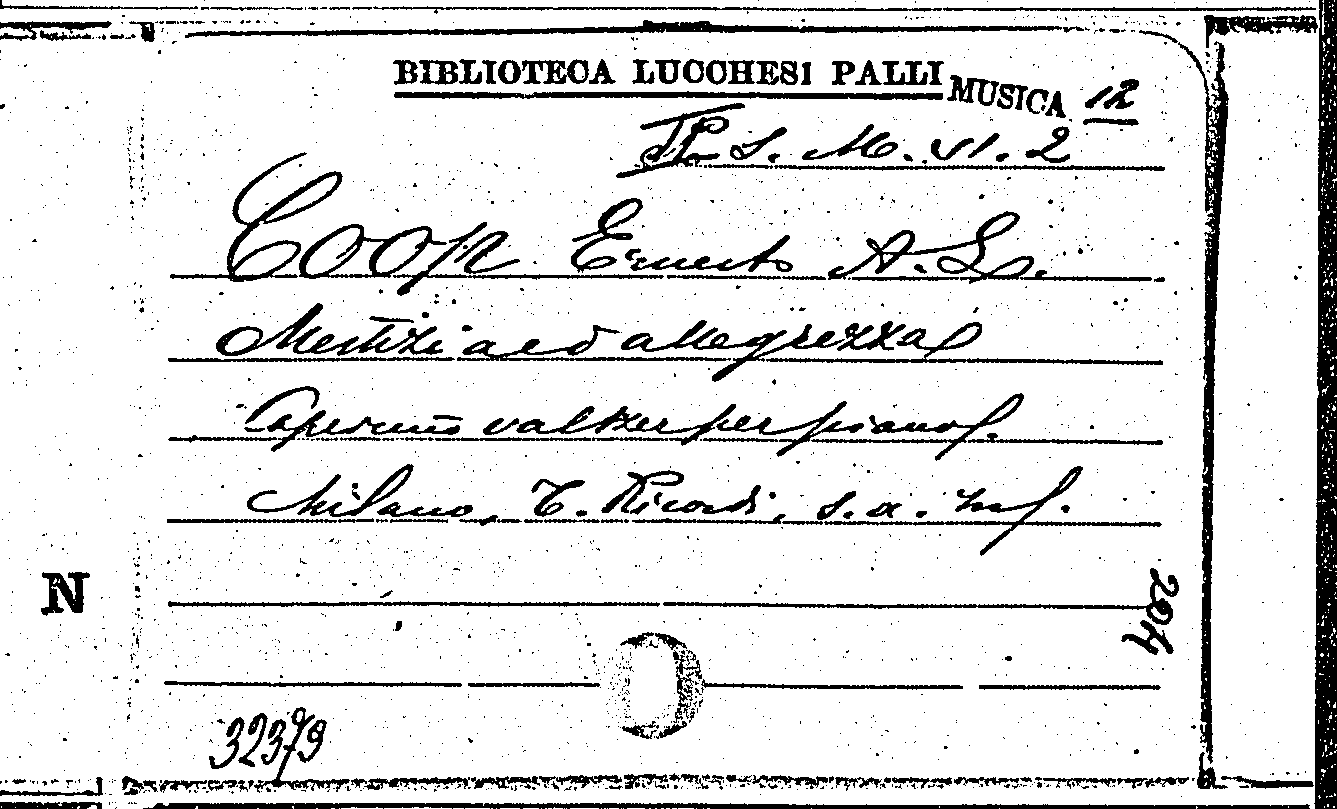 BIBLIOTECA LUCCHESI PALLI MUSICA 12
S. M. VI. 2
Coop Ernesto A. L.
Mestizia ed allegrezza
Capriccio valtzer per pianof.
Milano, T. Ricordi, s. a. in f.
N
204
32379